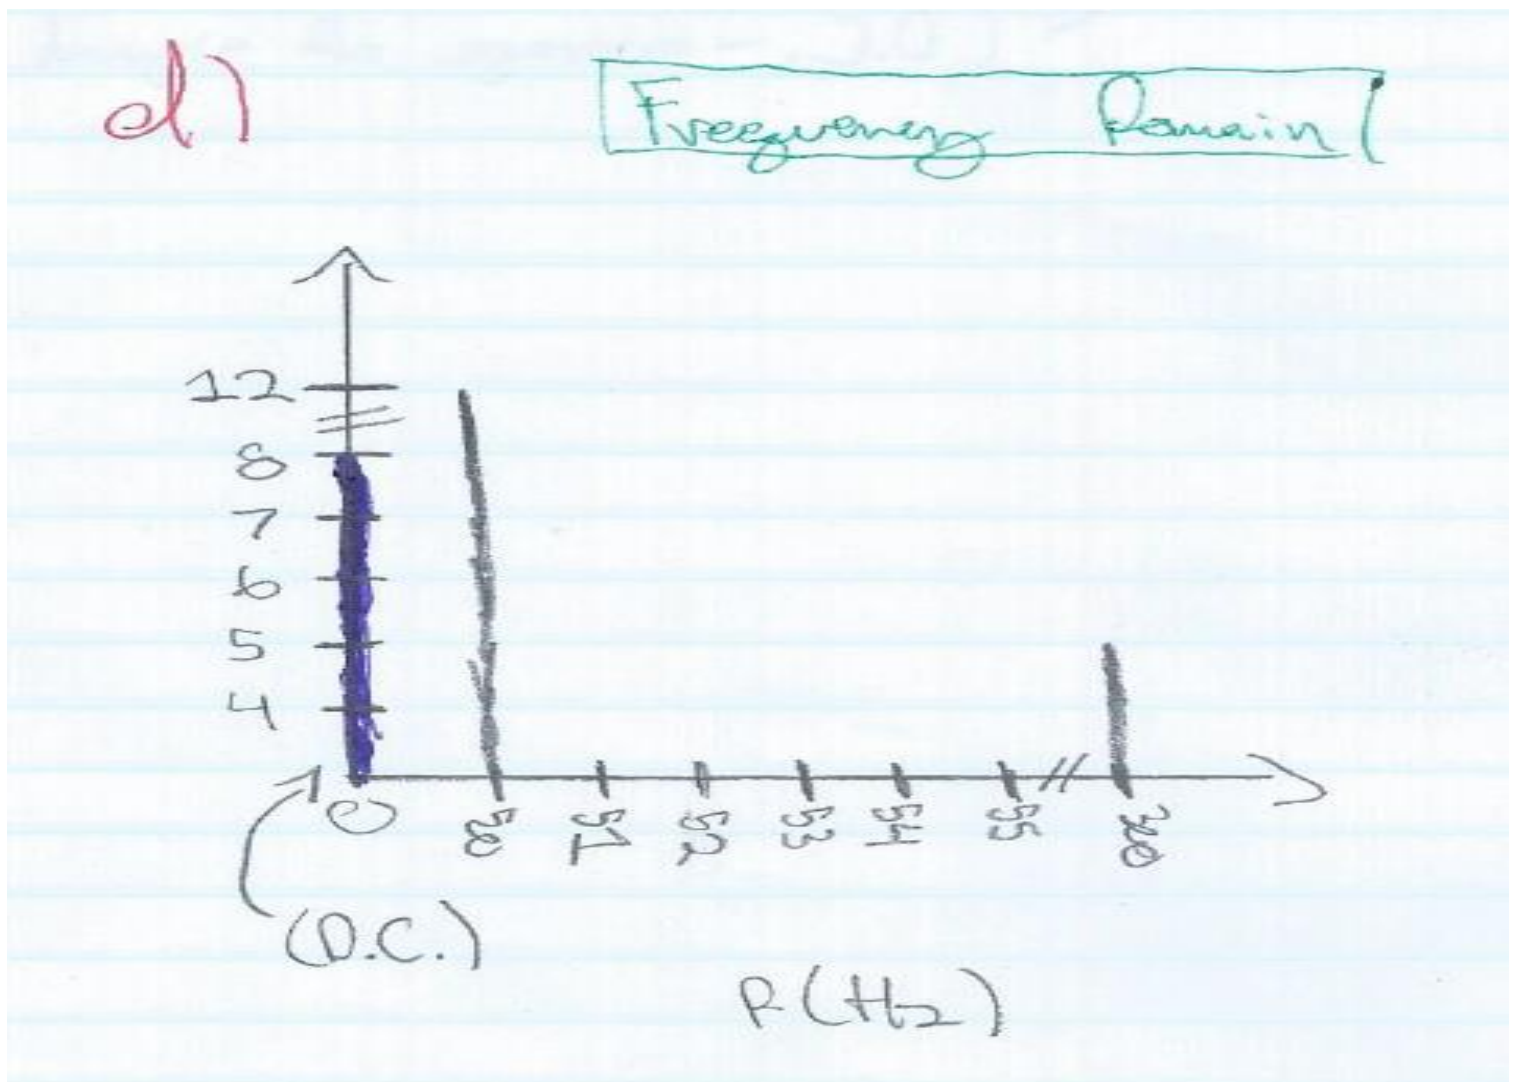 d)
Frequency Domain
12
8
7
6
5
4
0 50 51 52 53 54 55 300
(D.C.)
F(Hz)